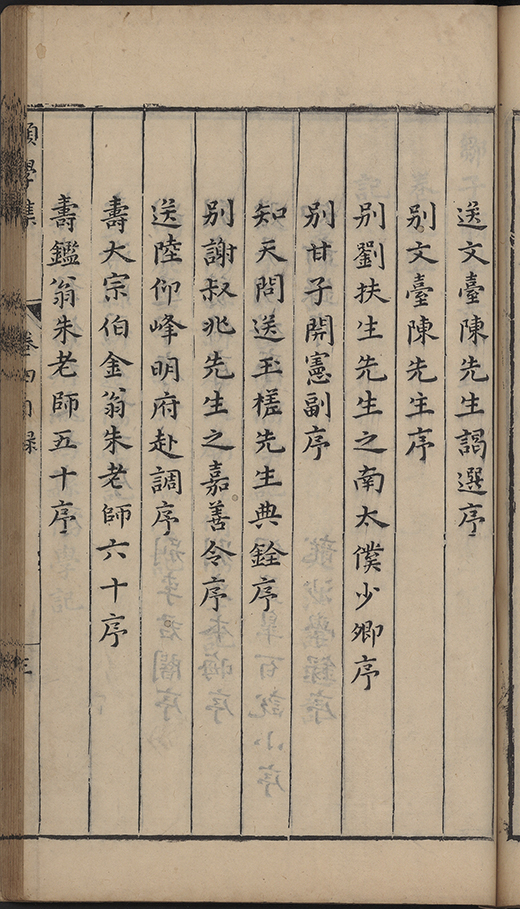 送文臺陳先生謁選序
別文臺陳先生序
別劉扶生先生之南太僕少卿序
別甘子開憲副序
知天問送玉槎先生典銓序
別謝叔兆先生之嘉善令序
送陸仰峰明府赴調序
壽大宗伯金翁朱老師六十序
壽鑑翁朱老師五十序
學集
卷四目錄
三